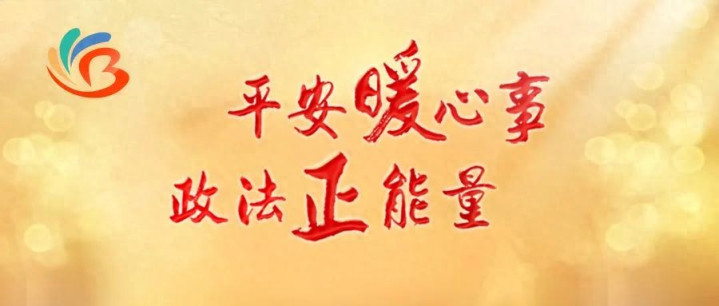 平安暖心事
政法正能量